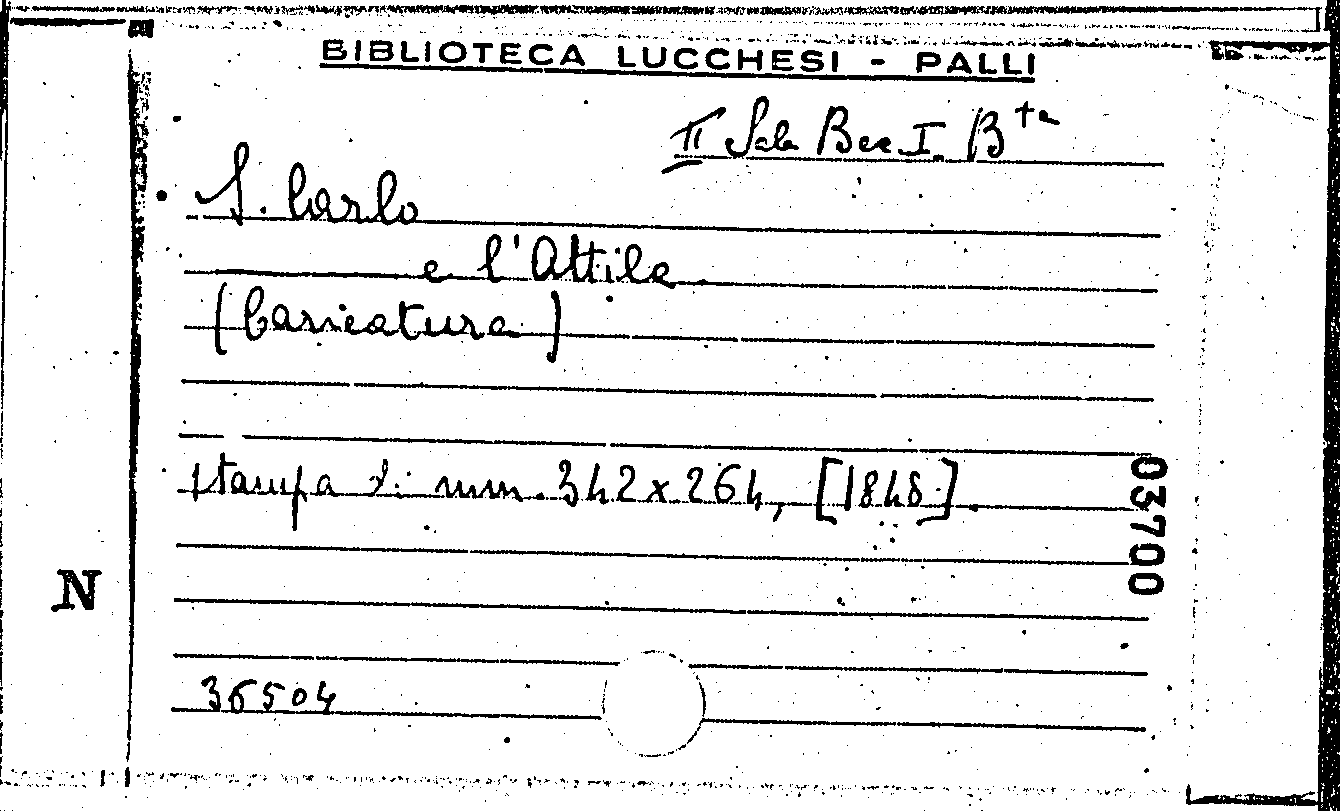 BIBLIOTECA LUCCHESI - PALLI
II Sala Bac. I. B ta
S. Carlo
e l'Attila
(Caricatura)
stampa di mm. 342 x 264, [1848].
03700
N
36504